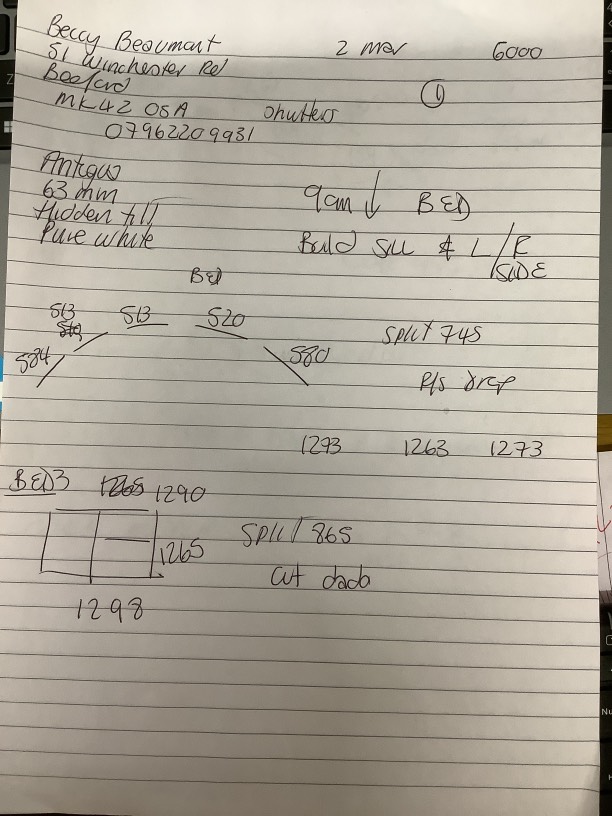 Beccy Beaumont 2 mar 6000
51 Winchester Rd
Bedford ①
MK42 0SA Shutters
07962209931
Antigua
63 mm
Hidden till
Pure white
9am ↓ BED
Build Sill & L/R
SIDE
BED
513 513 520
584 580
Split 745
P/s drop
1293 1263 1273
BED3 1265 1290
1265
Split 865
Cut dado
1298